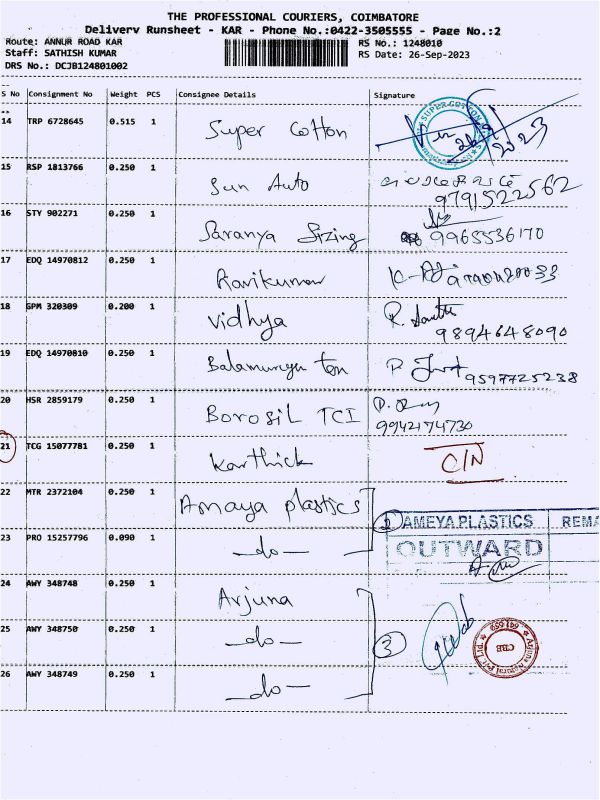 THE PROFESSIONAL COURIERS, COIMBATORE
Delivery Runsheet - KAR - Phone No.:0422-3505555 - Page No.:2
Route: ANNUR ROAD KAR
RS No.: 1248010
Staff: SATHISH KUMAR
RS Date: 26-Sep-2023
DRS No.: DCJB124801002
S No Consignment No Weight PCS Consignee Details Signature
14 TRP 6728645 0.515 1 Super Cotton
2023
15 RSP 1813766 0.250 1 Sun Auto
9791522562
16 STY 902271 0.250 1 Saranya Sizing 9965536170
17 EDQ 14970812 0.250 1 Ravikumar
18 GPM 320309 0.200 1 Vidhya
9894648090
19 EDQ 14970810 0.250 1 Balamurugan
9597725238
20 HSR 2859179 0.250 1 Borosil TCI
9942174730
21 TCG 15077781 0.250 1 Karthick C/N
22 MTR 2372104 0.250 1 Amaya plastics
2 AMEYA PLASTICS REMA
23 PRO 15257796 0.090 1 —do—
OUTWARD
24 AWY 348748 0.250 1 Arjuna
25 AWY 348750 0.250 1 —do— 3
CBE
26 AWY 348749 0.250 1 —do—